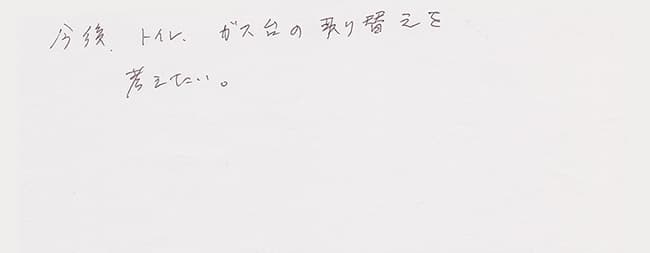 今後、トイレ、ガス台の取り替えを
考えたい。